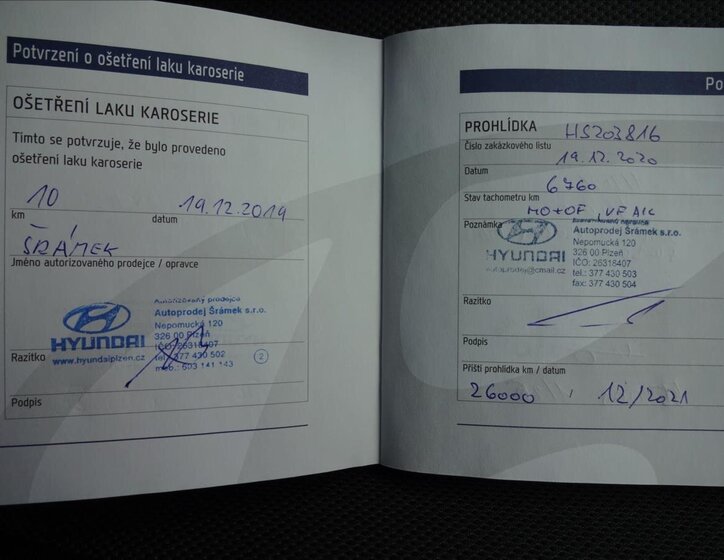 Potvrzení o ošetření laku karoserie
OŠETŘENÍ LAKU KAROSERIE
Timto se potvrzuje, že bylo provedeno
ošetření laku karoserie
10 19.12.2019
km datum
ŠRÁMEK
Jméno autorizovaného prodejce / opravce
Autorizovaný prodejce
Autoprodej Šrámek s.r.o.
Nepomucká 120
326 00 Plzeň
HYUNDAI
IČO: 26318407
Razítko
www.hyundaiplzen.cz
tel.: 377 430 502
mob.: 603 141 143
2
Podpis
Po
PROHLÍDKA HS203816
Číslo zakázkového listu
19.12.2020
Datum
6760
Stav tachometru km
MO+OF
Poznámka
Autoprodej Šrámek s.r.o.
Nepomucká 120
326 00 Plzeň
HYUNDAI
IČO: 26318407
autoprodej@cmail.cz
tel.: 377 430 503
fax: 377 430 504
Razítko
Podpis
Příští prohlídka km / datum
26000 / 12/2021